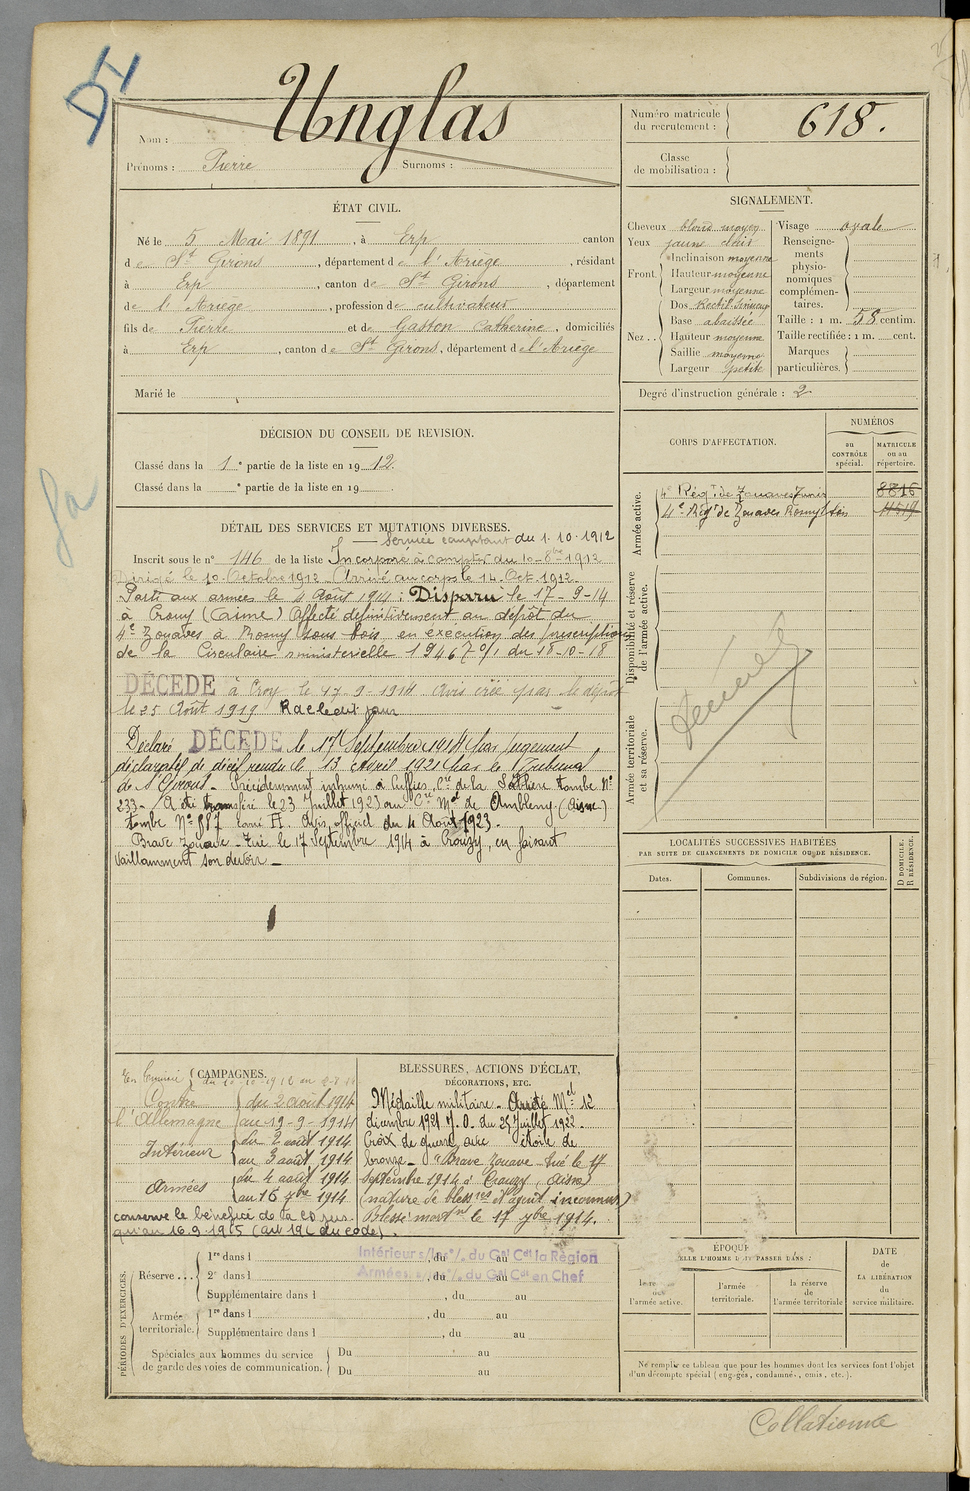 DH
Nom : Unglas
Prénoms : Pierre Surnoms :
Numéro matricule du recrutement : 618.
Classe de mobilisation :
ÉTAT CIVIL.
Né le 5 Mai 1891, à Erp canton
de St Girons, département de l'Ariège, résidant
à Erp, canton de St Girons, département
de l'Ariège, profession de cultivateur
fils de Pierre et de Gaston Catherine, domiciliés
à Erp, canton de St Girons, département de l'Ariège
Marié le
SIGNALEMENT.
Cheveux blond moyen
Yeux jaune clair
Front. Inclinaison moyenne
Hauteur moyenne
Largeur moyenne
Nez.. Dos Rectil. sinueux
Base abaissée
Hauteur moyenne
Saillie moyenne
Largeur petite
Visage ovale
Renseignements physionomiques complémentaires.
Taille : 1 m. 58 centim.
Taille rectifiée : 1 m. cent.
Marques particulières.
Degré d'instruction générale : 2
DÉCISION DU CONSEIL DE REVISION.
Classé dans la 1e partie de la liste en 1912.
Classé dans la e partie de la liste en 19 .
CORPS D'AFFECTATION.
NUMÉROS
au CONTRÔLE spécial.
MATRICULE ou au répertoire.
Armée active.
4e Régt de Zouaves Tunis 8816
4e Régt de Zouaves Rosny s bois 11519
Disponibilité et réserve de l'armée active.
Armée territoriale et sa réserve.
DÉTAIL DES SERVICES ET MUTATIONS DIVERSES.
Service comptant du 1.10.1912
Inscrit sous le n° 146 de la liste Incorporé à compter du 10-8bre 1912
Dirigé le 10 Octobre 1912 Arrivé au corps le 14 Oct. 1912.
Parti aux armées le 4 Août 1914 : Disparu le 17-9-14
à Crouy (Aisne) Affecté définitivement au dépôt du
4e Zouaves à Rosny sous bois en exécution des prescriptions
de la Circulaire ministérielle 19467 0/1 du 18-10-18
DÉCÉDÉ à Croy le 17-9-1914 Avis créé par le dépôt
le 25 Août 1919
Déclaré DÉCÉDÉ le 17 Septembre 1914 par jugement
déclaratif de décès rendu le 13 Avril 1921 par le Tribunal
de St Girons. Précédemment inhumé à Cuffies, Cre de la tombe N°
233 - A été transféré le 23 Juillet 1923 au Cre Mre de Ambleny (Aisne)
tombe N° 887 carré A. Avis officiel du 4 Août 1923.
Brave Zouave - Tué le 17 Septembre 1914 à Crouzy, en faisant
vaillamment son devoir -
LOCALITÉS SUCCESSIVES HABITÉES
PAR SUITE DE CHANGEMENTS DE DOMICILE OU DE RÉSIDENCE.
Dates. Communes. Subdivisions de région. D DOMICILE. R RÉSIDENCE.
CAMPAGNES.
Contre l'Allemagne du 2 août 1914
au 19-9-1914
Intérieur du 2 août 1914
au 3 août 1914
Armées du 4 août 1914
au 16 7bre 1914
conserve le bénéfice de la Cp jus-
qu'au 16.9.1915 (art 196 du code).
BLESSURES, ACTIONS D'ÉCLAT,
DÉCORATIONS, ETC.
Médaille militaire - Arrêté Mel 12
décembre 1921 J.O. du 25 Juillet 1922.
Croix de guerre avec étoile de
bronze - "Brave Zouave - tué le 17
septembre 1914 à Crouzy (Aisne)
(nature de bless res et agent inconnus)
Blessé mortnt le 17 7bre 1914.
Intérieur s/les o/. du Gal Cdt la Région
Armées s/les o/. du Gal Cdt en Chef
PÉRIODES D'EXERCICES.
Réserve... 1re dans l , du au
2e dans l , du au
Supplémentaire dans l , du au
Armée territoriale. 1re dans l , du au
Supplémentaire dans l , du au
Spéciales aux hommes du service de garde des voies de communication. Du au
Du au
ÉPOQUE
l'armée active.
l'armée territoriale.
la réserve de l'armée territoriale
DATE de LA LIBÉRATION du service militaire.
Ne remplir ce tableau que pour les hommes dont les services font l'objet
d'un décompte spécial (engagés, condamnés, omis, etc.).
Collationné